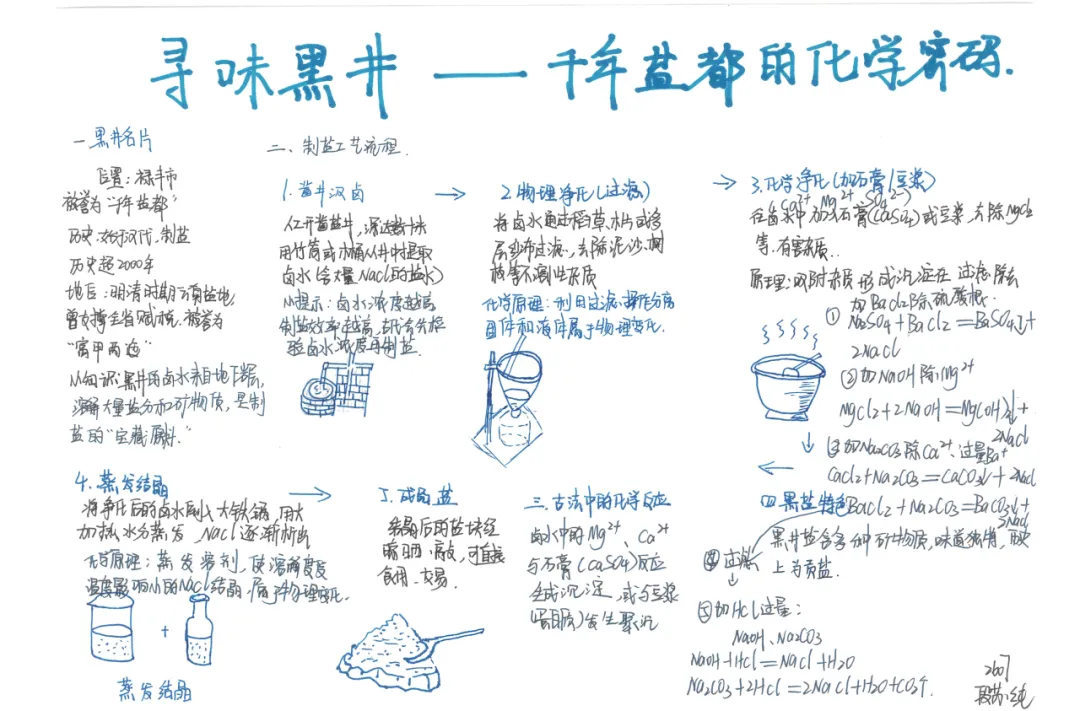 寻味黑井——千年盐都的化学密码.
一黑井名片
位置:禄丰市
被誉为"千年盐都"
历史:始于汉代,制盐
历史超2000年
地位:明清时期 盐地
曾支撑全省赋税.被誉为
"富甲两迤"
小知识:黑井的卤水来自地下岩层,
溶解大量盐分和矿物质,是制
盐的"宝藏原料."
二、制盐工艺流程.
1.凿井汲卤
人工凿盐井,深达数十米
用竹筒或木桶从井中提取
卤水(含大量NaCl的盐水)
小提示:卤水浓度越高
制盐效率越高,古代会先检
验卤水浓度再制盐.
2.物理净化(过滤)
将卤水通过稻草、木片或多
层纱布过滤,去除泥沙、树
枝等不溶性杂质
化学原理:利用过滤操作分离
固体和液体属于物理变化.
3.化学净化(加石膏/豆浆)
(Ca²⁺ Mg²⁺ SO₄²⁻)
在卤水中加入石膏(CaSO₄)或豆浆,去除MgCl₂
等.有害杂质.
原理:吸附杂质形成沉淀在过滤除去
加BaCl₂除硫酸根.
① Na₂SO₄+BaCl₂=BaSO₄↓+
2NaCl
②加NaOH除Mg²⁺
MgCl₂+2NaOH=Mg(OH)₂↓+
2NaCl
③加Na₂CO₃除Ca²⁺、过量Ba⁺
CaCl₂+Na₂CO₃=CaCO₃↓+2NaCl
BaCl₂+Na₂CO₃=BaCO₃↓+
2NaCl
④过滤
⑤加HCl过量:
NaOH、Na₂CO₃
NaOH+HCl=NaCl+H₂O
Na₂CO₃+2HCl=2NaCl+H₂O+CO₂↑.
4.蒸发结晶
将净化后的卤水倒入大铁锅,用火
加热,水分蒸发,NaCl逐渐析出
化学原理:蒸发溶剂,使溶解度受
温度影响小的NaCl结晶,属于物理变化.
蒸发结晶
5.成品盐
结晶后的盐块经
晾晒、敲散,可直接
食用、交易.
三.古法中的化学反应
卤水中的Mg²⁺、Ca²⁺
与石膏(CaSO₄)反应
生成沉淀,或与豆浆
(蛋白质)发生聚沉
四.黑盐特色
黑井盐含多种矿物质,味道独特,
上为贡盐.
2607